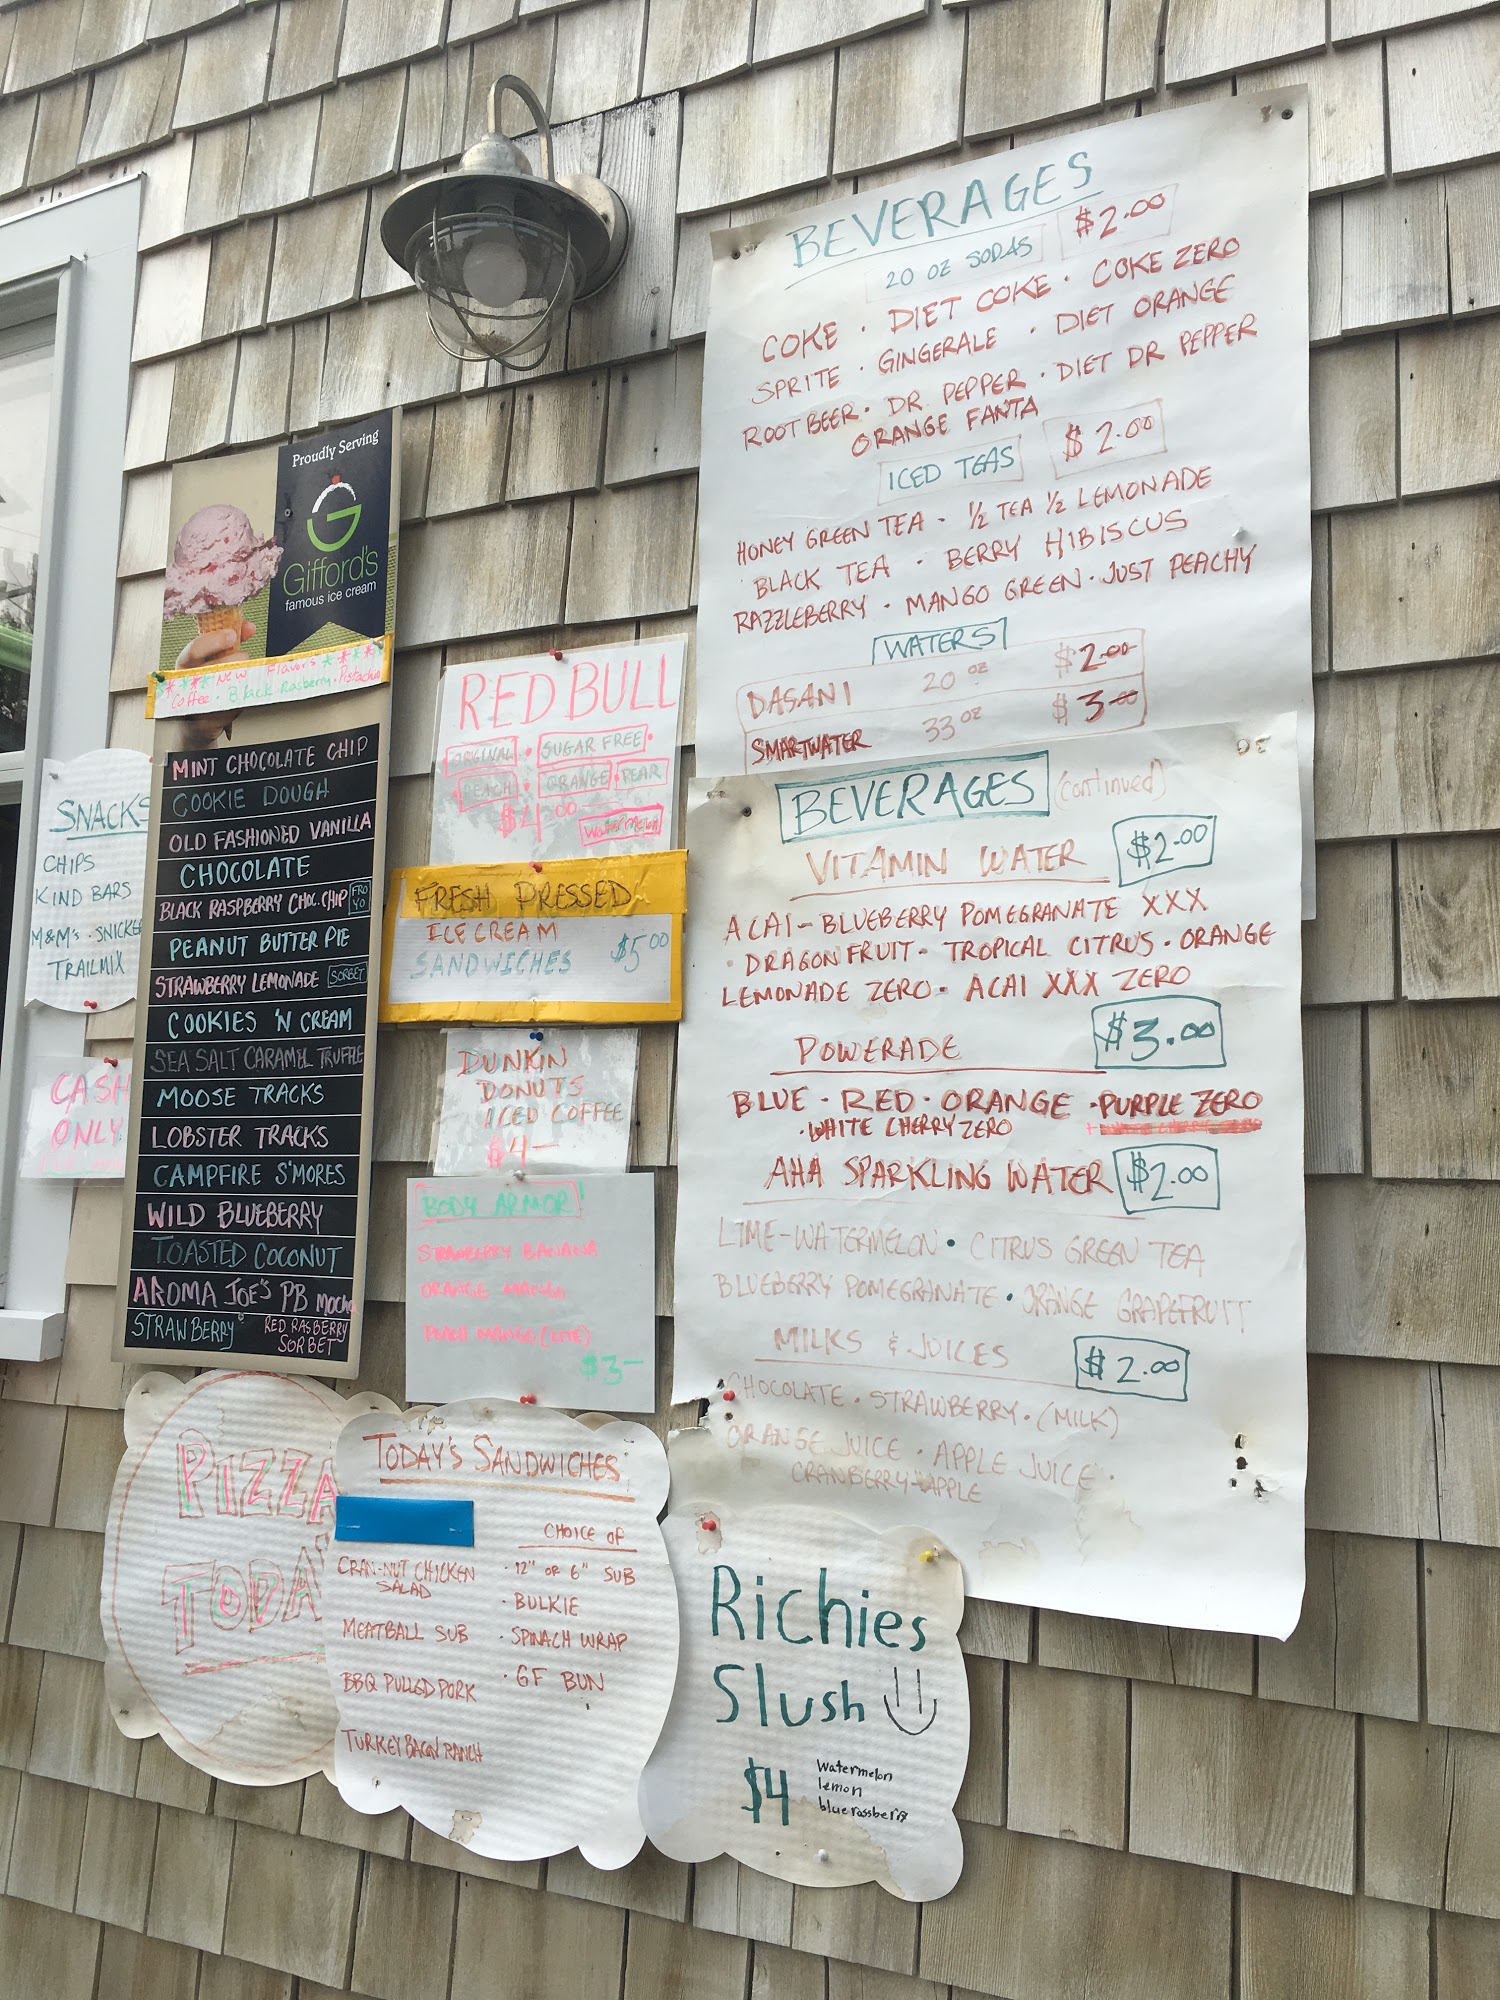 Proudly Serving
G
Gifford's
famous ice cream
New Flavors
Coffee · Black Rasberry · Pistachio
MINT CHOCOLATE CHIP
COOKIE DOUGH
OLD FASHIONED VANILLA
CHOCOLATE
BLACK RASPBERRY CHOC. CHIP FRO YO
PEANUT BUTTER PIE
STRAWBERRY LEMONADE SORBET
COOKIES 'N CREAM
SEA SALT CARAMEL TRUFFLE
MOOSE TRACKS
LOBSTER TRACKS
CAMPFIRE S'MORES
WILD BLUEBERRY
TOASTED COCONUT
AROMA JOE'S PB MOCHA
STRAWBERRY RED RASBERRY
SORBET
SNACKS
CHIPS
KIND BARS
M&M's · SNICKE
TRAILMIX
CASH
ONLY
RED BULL
ORIGINAL · SUGAR FREE ·
PEACH · ORANGE · PEAR
$4.00 Watermelon
FRESH PRESSED
ICE CREAM
SANDWICHES $5.00
DUNKIN
DONUTS
ICED COFFEE
$4—
BODY ARMOR
STRAWBERRY BANANA
ORANGE MANGO
PEACH MANGO (LITE)
$3—
PIZZA
TODA
TODAY'S SANDWICHES
CRAN-NUT CHICKEN
SALAD
MEATBALL SUB
BBQ PULLED PORK
TURKEY BACON RANCH
CHOICE OF
· 12" OR 6" SUB
· BULKIE
· SPINACH WRAP
· GF BUN
Richies
Slush
$4
Watermelon
lemon
bluerassberry
BEVERAGES
20 OZ SODAS $2.00
COKE · DIET COKE · COKE ZERO
SPRITE · GINGERALE · DIET ORANGE
ROOT BEER · DR. PEPPER · DIET DR PEPPER
ORANGE FANTA
ICED TEAS $2.00
HONEY GREEN TEA · ½ TEA ½ LEMONADE
BLACK TEA · BERRY HIBISCUS
RAZZLEBERRY · MANGO GREEN · JUST PEACHY
WATERS
DASANI 20 OZ $2.00
SMARTWATER 33 OZ $3.00
BEVERAGES (continued)
VITAMIN WATER $2.00
ACAI-BLUEBERRY POMEGRANATE XXX
· DRAGONFRUIT · TROPICAL CITRUS · ORANGE
LEMONADE ZERO · ACAI XXX ZERO
POWERADE $3.00
BLUE · RED · ORANGE · PURPLE ZERO
· WHITE CHERRY ZERO
AHA SPARKLING WATER $2.00
LIME-WATERMELON · CITRUS GREEN TEA
BLUEBERRY POMEGRANATE · ORANGE GRAPEFRUIT
MILKS & JUICES $2.00
CHOCOLATE · STRAWBERRY · (MILK)
ORANGE JUICE · APPLE JUICE ·
CRANBERRY-APPLE